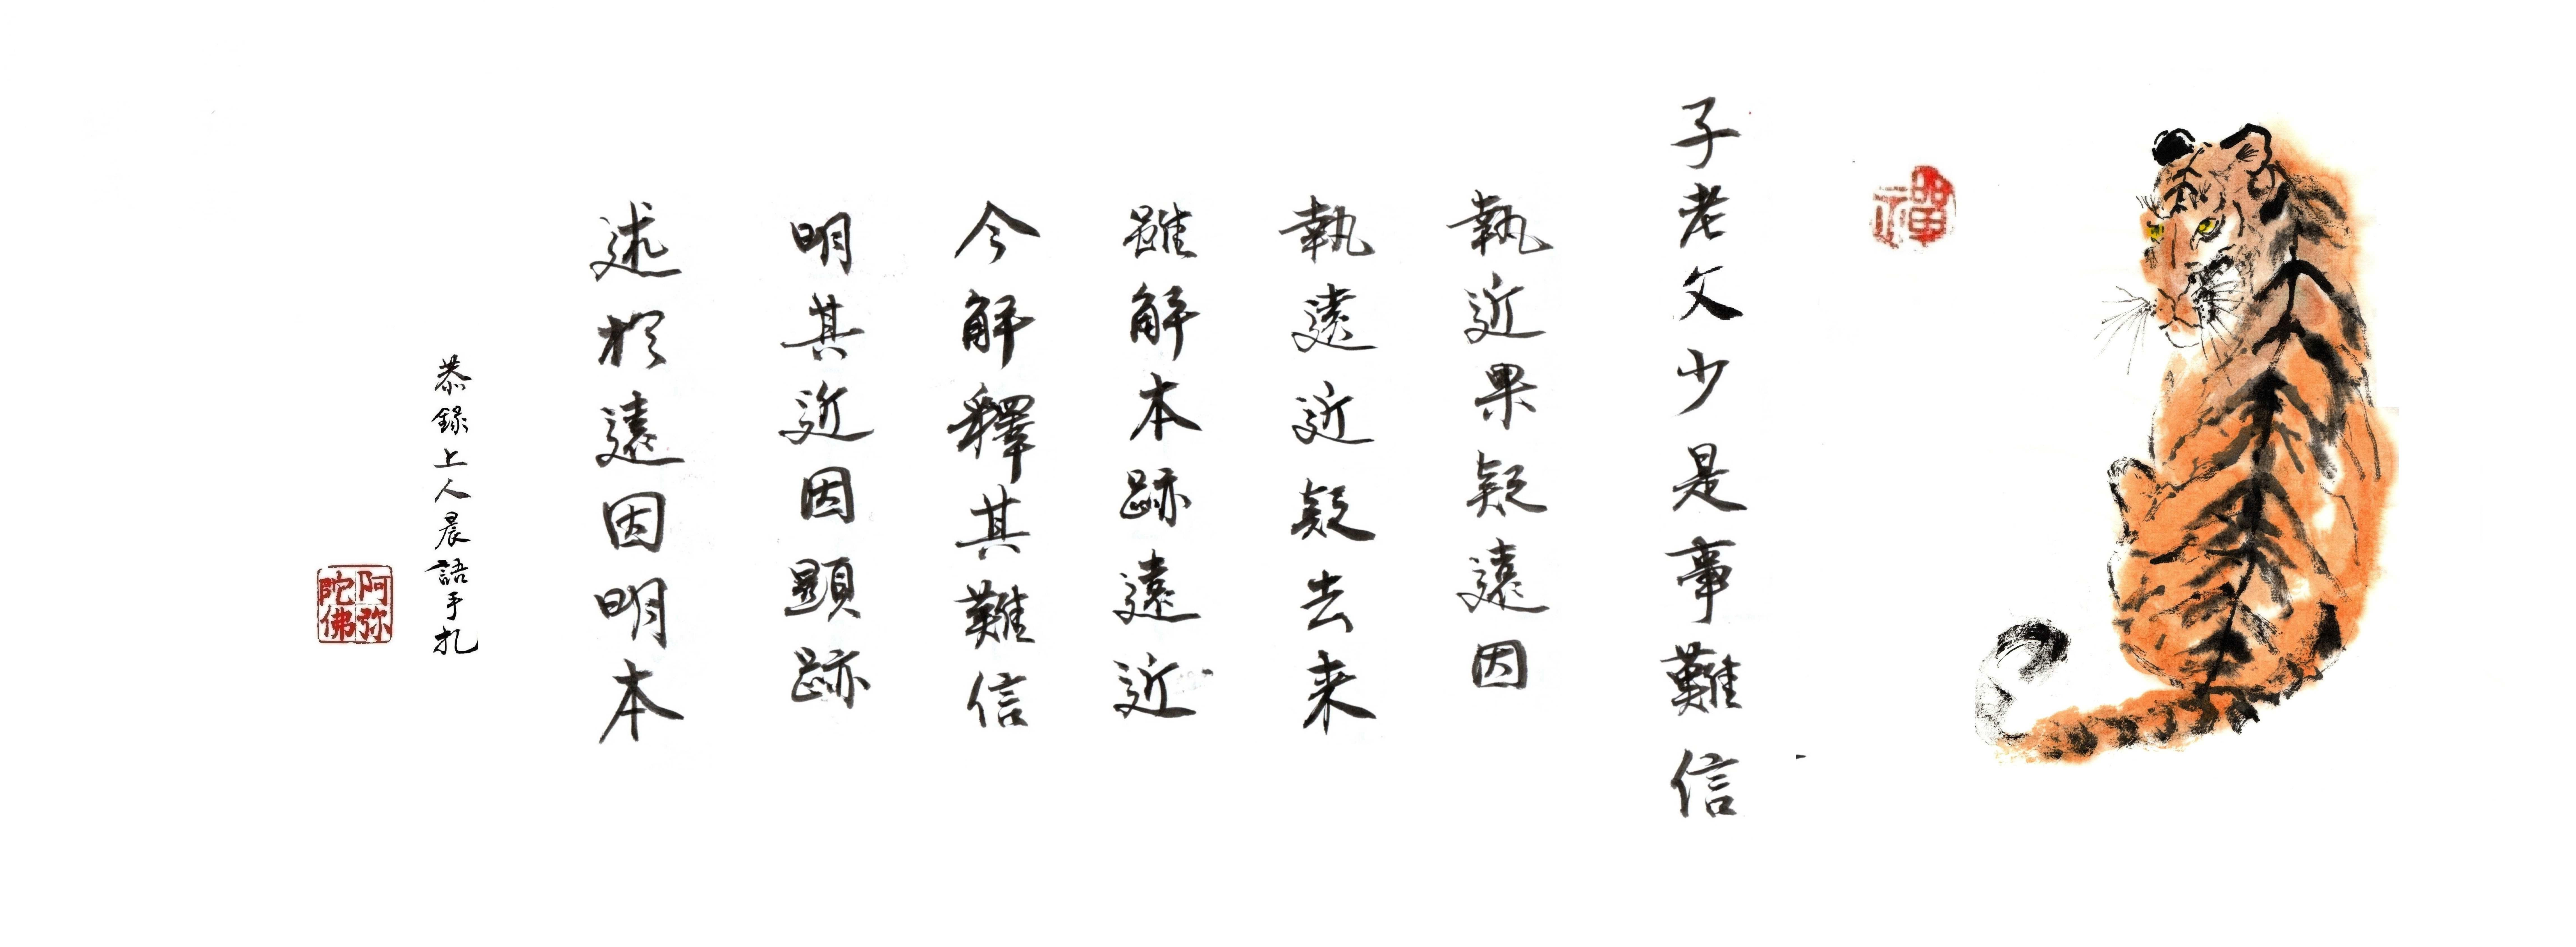 禪
子老父少是事難信
執近果疑遠因
執遠近疑去来
雖解本跡遠近
今解釋其難信
明其近因顯跡
述於遠因明本
恭錄上人晨語手扎
阿弥陀佛